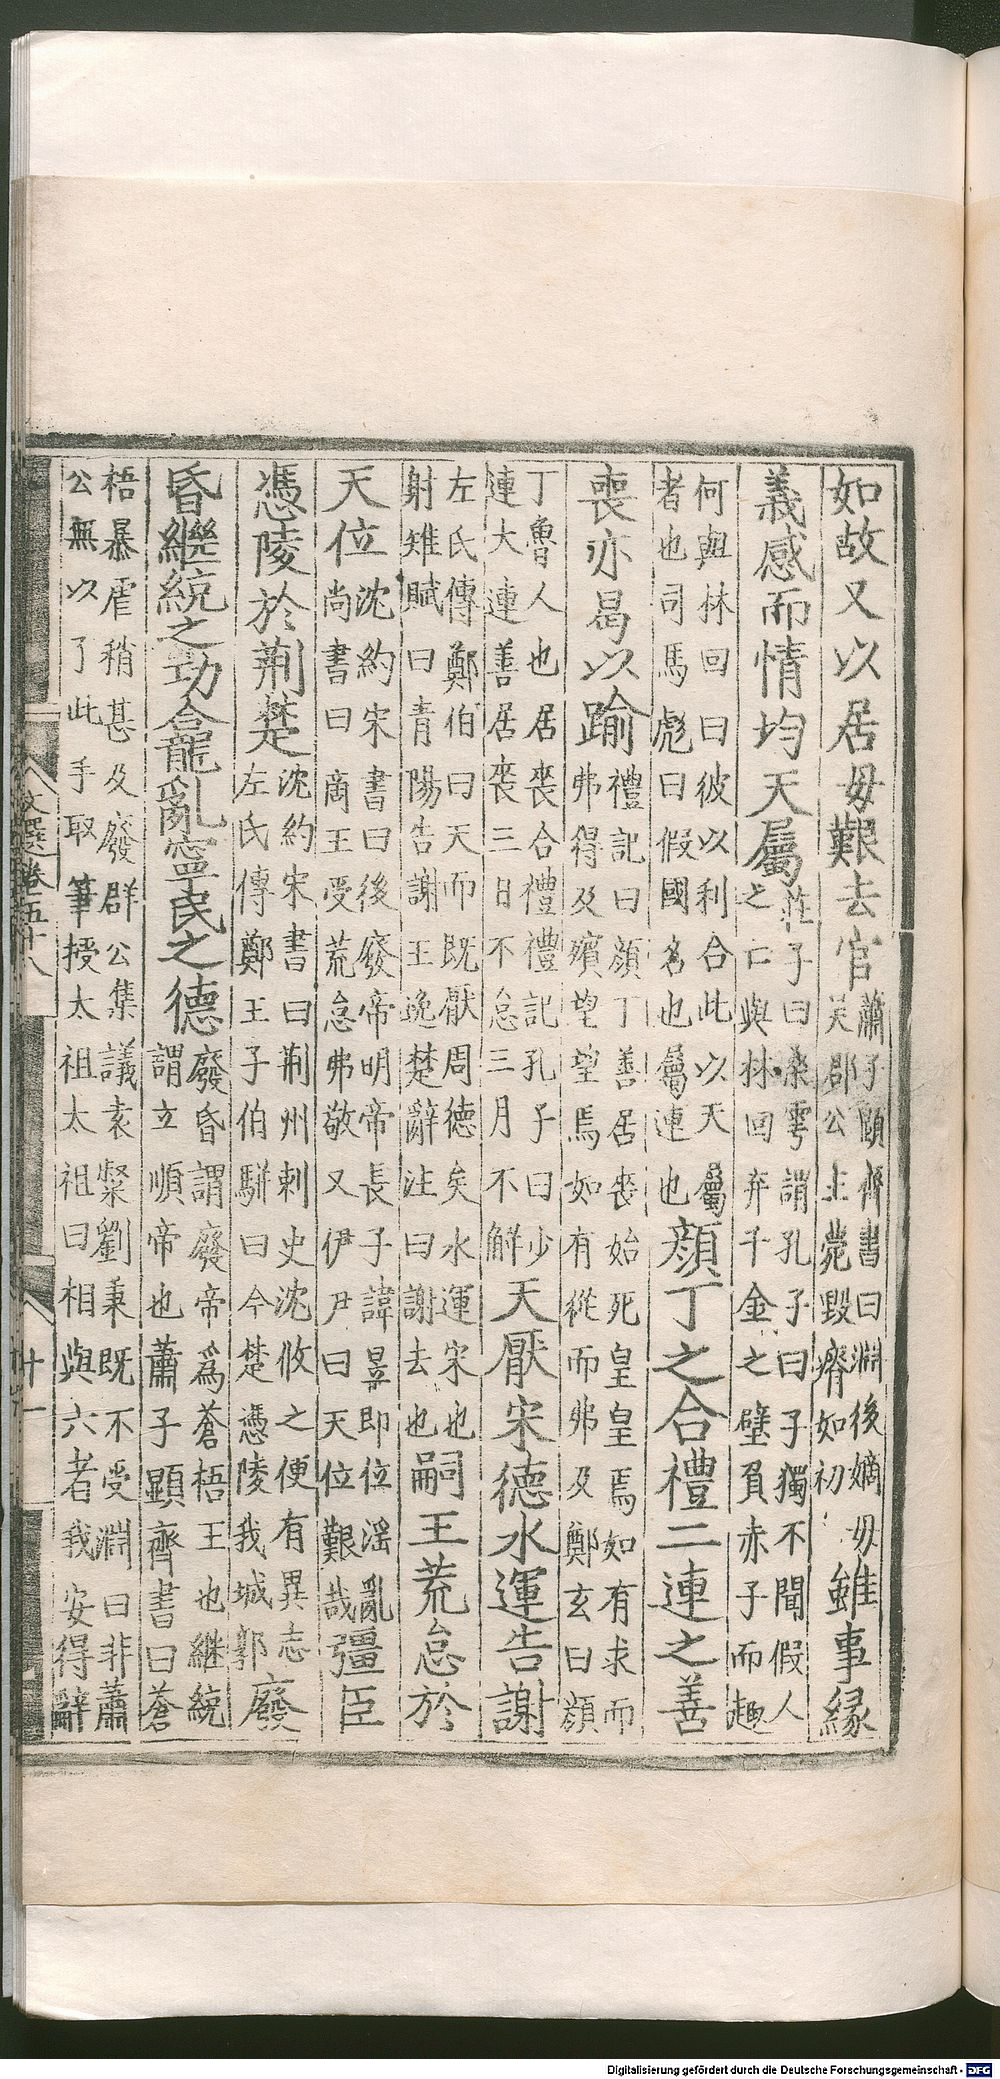 如故又以居毋艱去官蕭子顯齊書曰淵後嫡毋吴郡公主薨毀瘠如初雖事縁
義感而情均天屬莊子曰桑雩謂孔子曰子獨不聞假人之亡與林回弃千金之璧負赤子而趣
何與林回曰彼以利合此以天屬者也司馬彪曰假國名也屬連也顔丁之合禮二連之善
喪亦曷以踰禮記曰顔丁善居喪始死皇皇焉如有求而弗得及殯望望焉如有從而弗及鄭玄曰顔
丁魯人也居喪合禮禮記孔子曰少連大連善居喪三日不怠三月不解天厭宋德水運告謝
左氏傳鄭伯曰天而既厭周德矣水運宋也射雉賦曰青陽告謝王逸楚辭注曰謝去也嗣王荒怠於
天位沈約宋書曰後廢帝明帝長子諱昱即位滛亂尚書曰商王受荒怠弗敬又伊尹曰天位艱哉彊臣
憑陵於荆楚沈約宋書曰荆州刺史沈攸之便有異志左氏傳鄭王子伯駢曰今楚憑陵我城郭廢
昏繼統之功龕亂寧民之德廢昏謂廢帝爲蒼梧王也継統謂立順帝也蕭子顯齊書曰蒼
梧暴虐稍甚及廢群公集議袁粲劉秉既不受淵曰非蕭公無以了此手取筆授太祖太祖曰相與六者我安得辭
文選卷五十八
十一
Digitalisierung gefördert durch die Deutsche Forschungsgemeinschaft - DFG